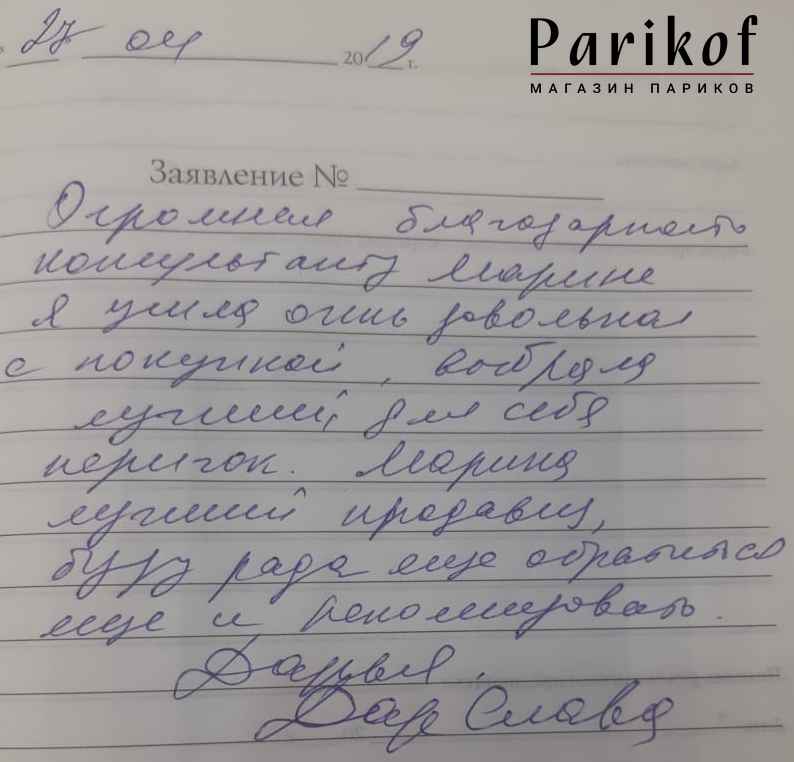 27 04 2019 г.
Parikof
МАГАЗИН ПАРИКОВ
Заявление №
Огромная благодарность
консультанту Марине
я ушла очень довольная
с покупкой, выбрала
лучший для себя
паричок. Марина
лучший продавец,
буду рада еще обратиться
еще и рекомендовать.
Дарья.
Слава